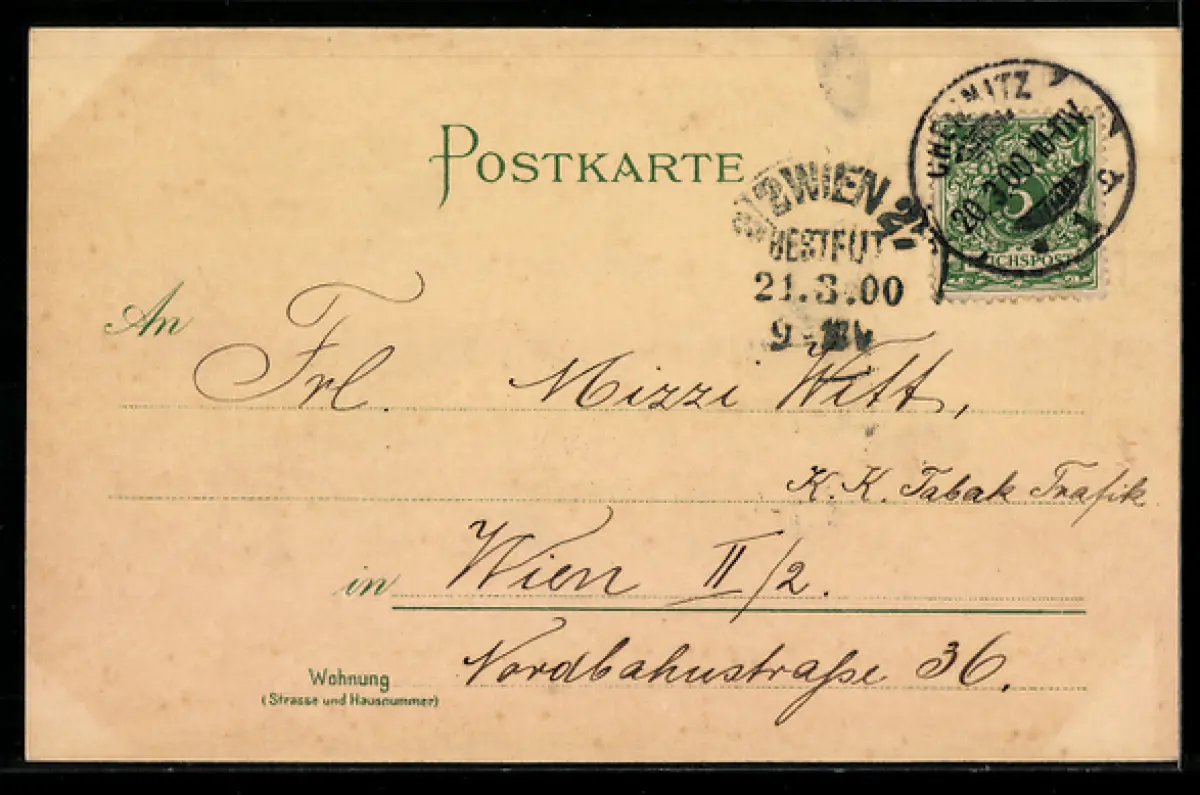 POSTKARTE
CHEMNITZ
20.3.00.10-11V.
1
5
REICHSPOST
2/2 WIEN 2/
BESTELLT
21.3.00
9-
An Frl. Mizzi Witt,
K. K. Tabak Trafik
in Wien II/2.
Wohnung Nordbahnstraße 36.
(Strasse und Hausnummer)